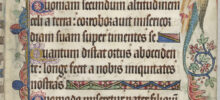 Quoniam secundum altitudinem
celi a terra: corroboravit misericor
diam suam super timentes se
Quantum distat ortus ab occiden
te: longe fecit a nobis iniquitates
nostras
Quomodo miseretur pater filiorum